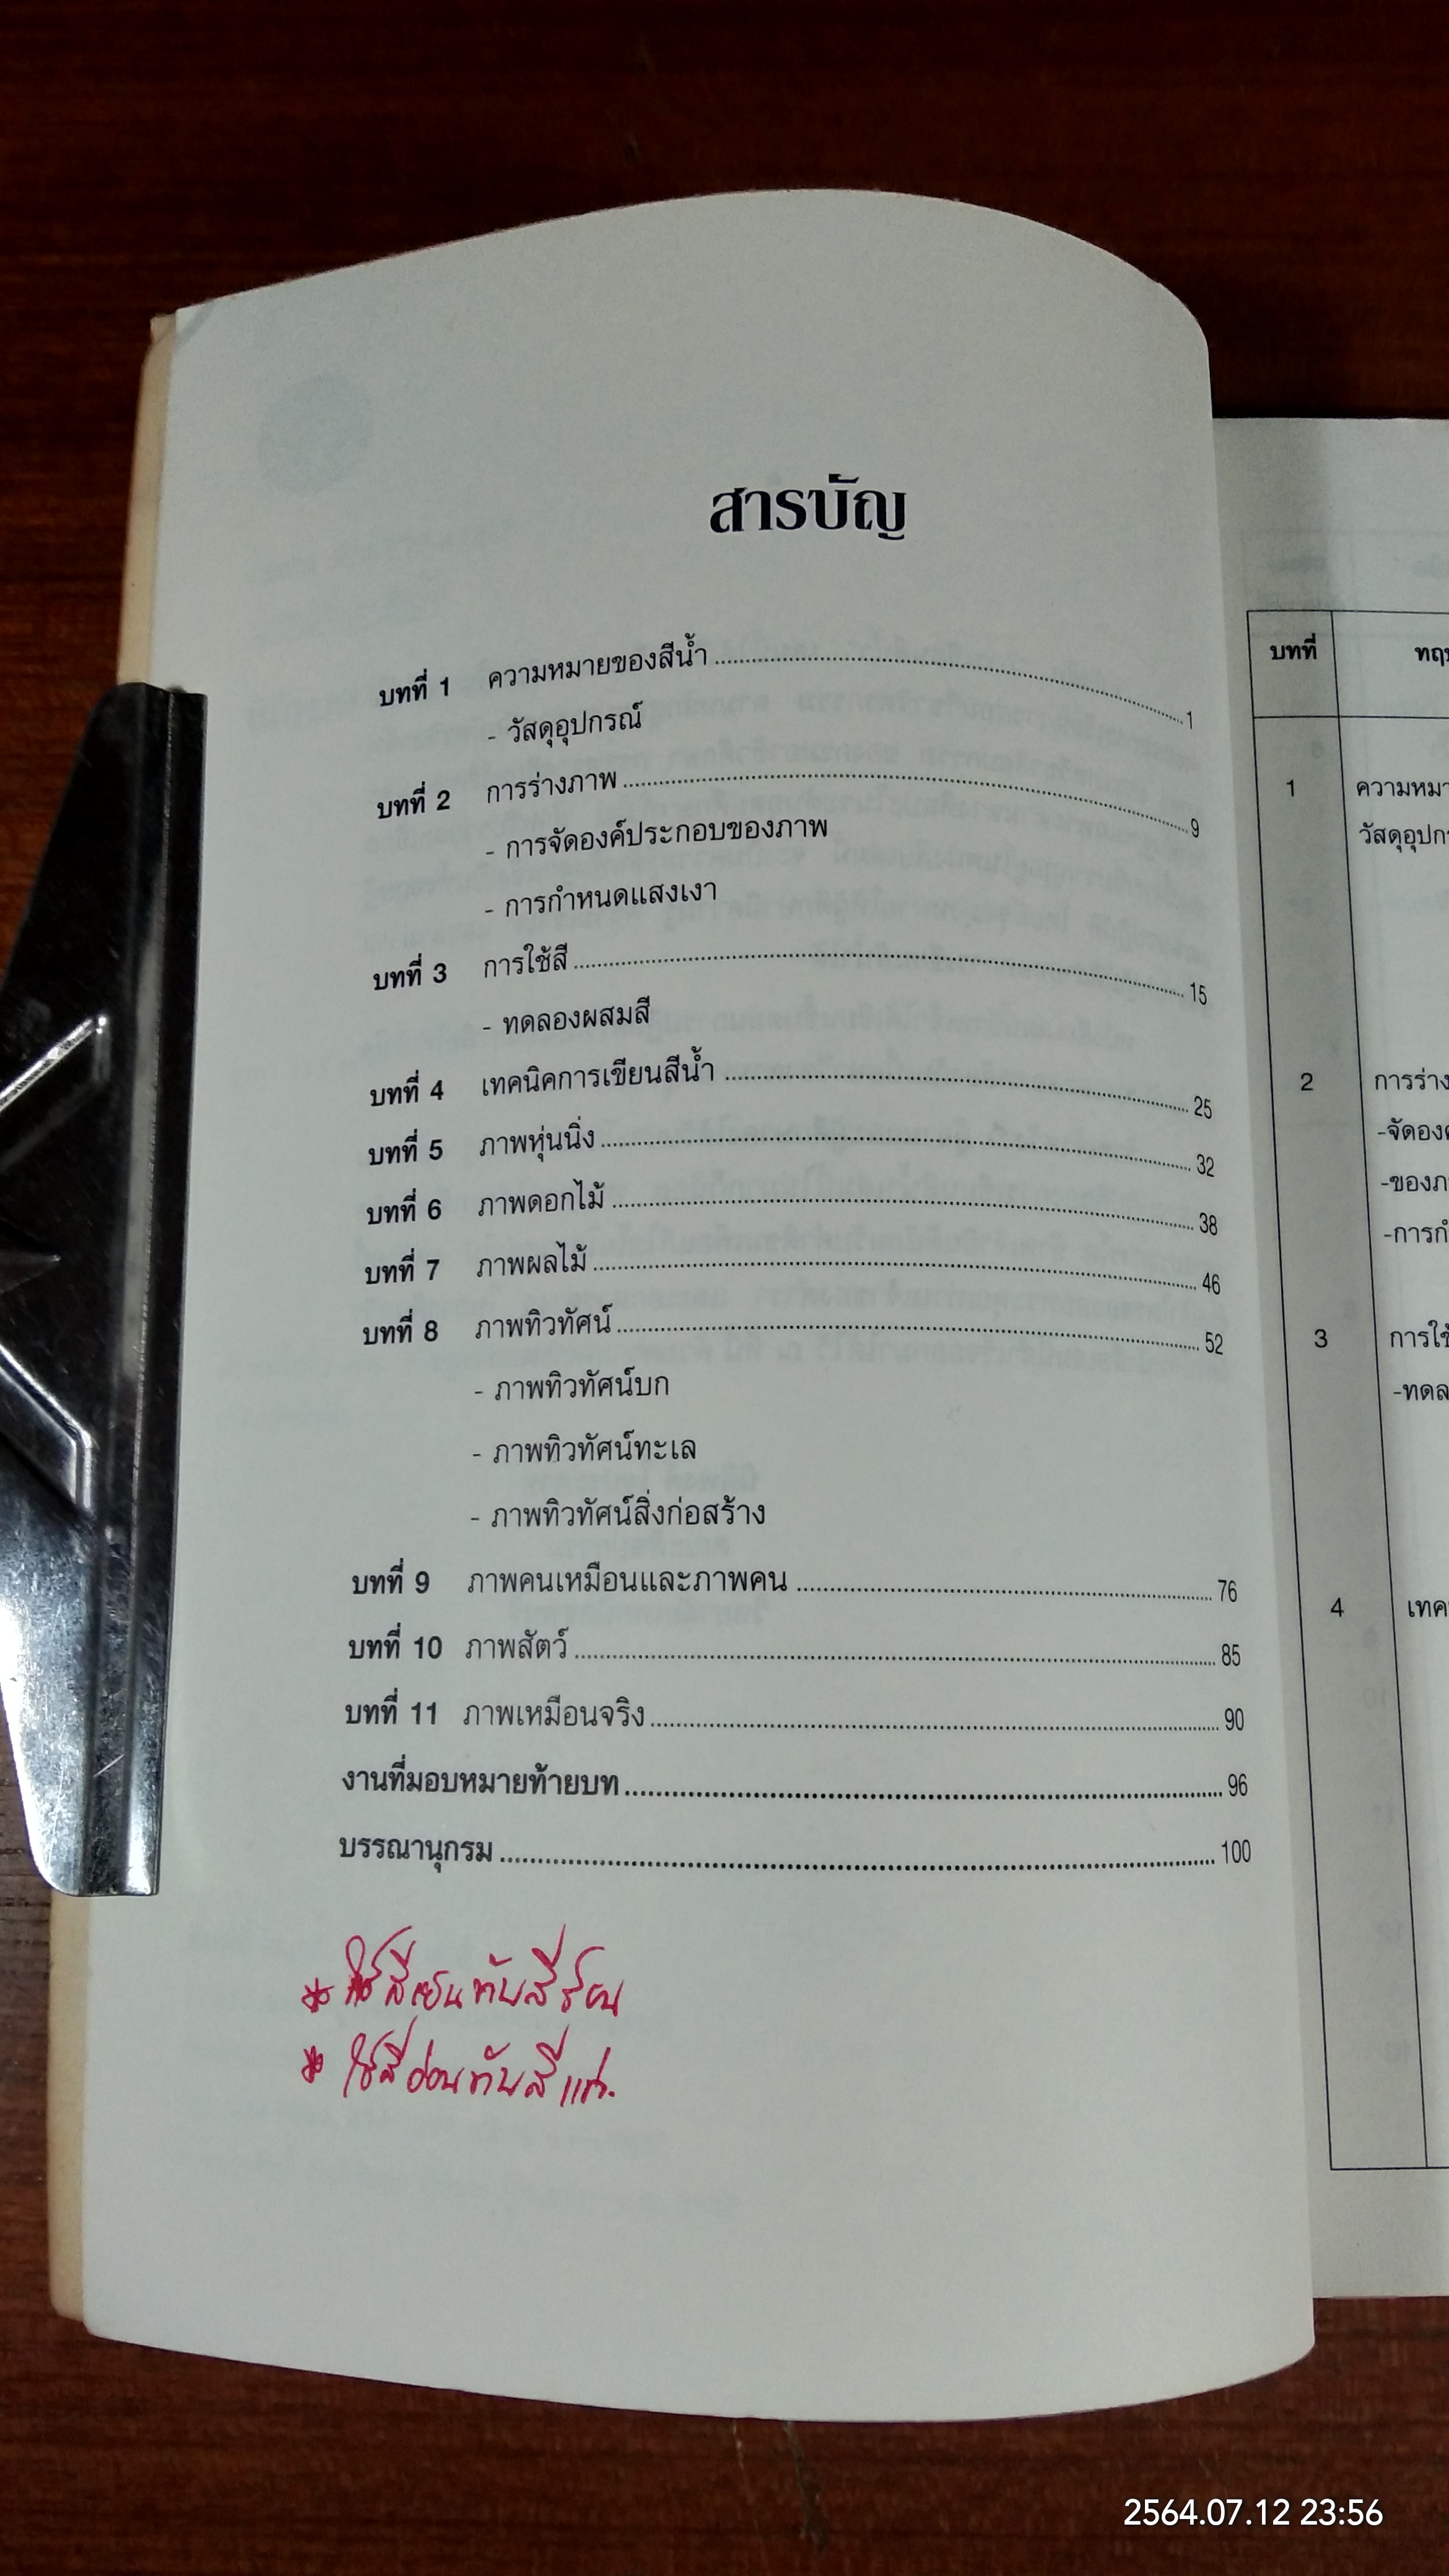 สารบัญ
บทที่ 1 ความหมายของสีน้ำ ........ 1
- วัสดุอุปกรณ์
บทที่ 2 การร่างภาพ ........ 9
- การจัดองค์ประกอบของภาพ
- การกำหนดแสงเงา
บทที่ 3 การใช้สี ........ 15
- ทดลองผสมสี
บทที่ 4 เทคนิคการเขียนสีน้ำ ........ 25
บทที่ 5 ภาพหุ่นนิ่ง ........ 32
บทที่ 6 ภาพดอกไม้ ........ 38
บทที่ 7 ภาพผลไม้ ........ 46
บทที่ 8 ภาพทิวทัศน์ ........ 52
- ภาพทิวทัศน์บก
- ภาพทิวทัศน์ทะเล
- ภาพทิวทัศน์สิ่งก่อสร้าง
บทที่ 9 ภาพคนเหมือนและภาพคน ........ 76
บทที่ 10 ภาพสัตว์ ........ 85
บทที่ 11 ภาพเหมือนจริง ........ 90
งานที่มอบหมายท้ายบท ........ 96
บรรณานุกรม ........ 100
* ใช้สีเย็นทับสีร้อน
* ใช้สีอ่อนทับสีแก่.
บทที่
1 ความหมา
วัสดุอุปก
2 การร่าง
-จัดองค์
-ของภ
-การก
3 การใช้
-ทดล
4 เทค
2564.07.12 23:56